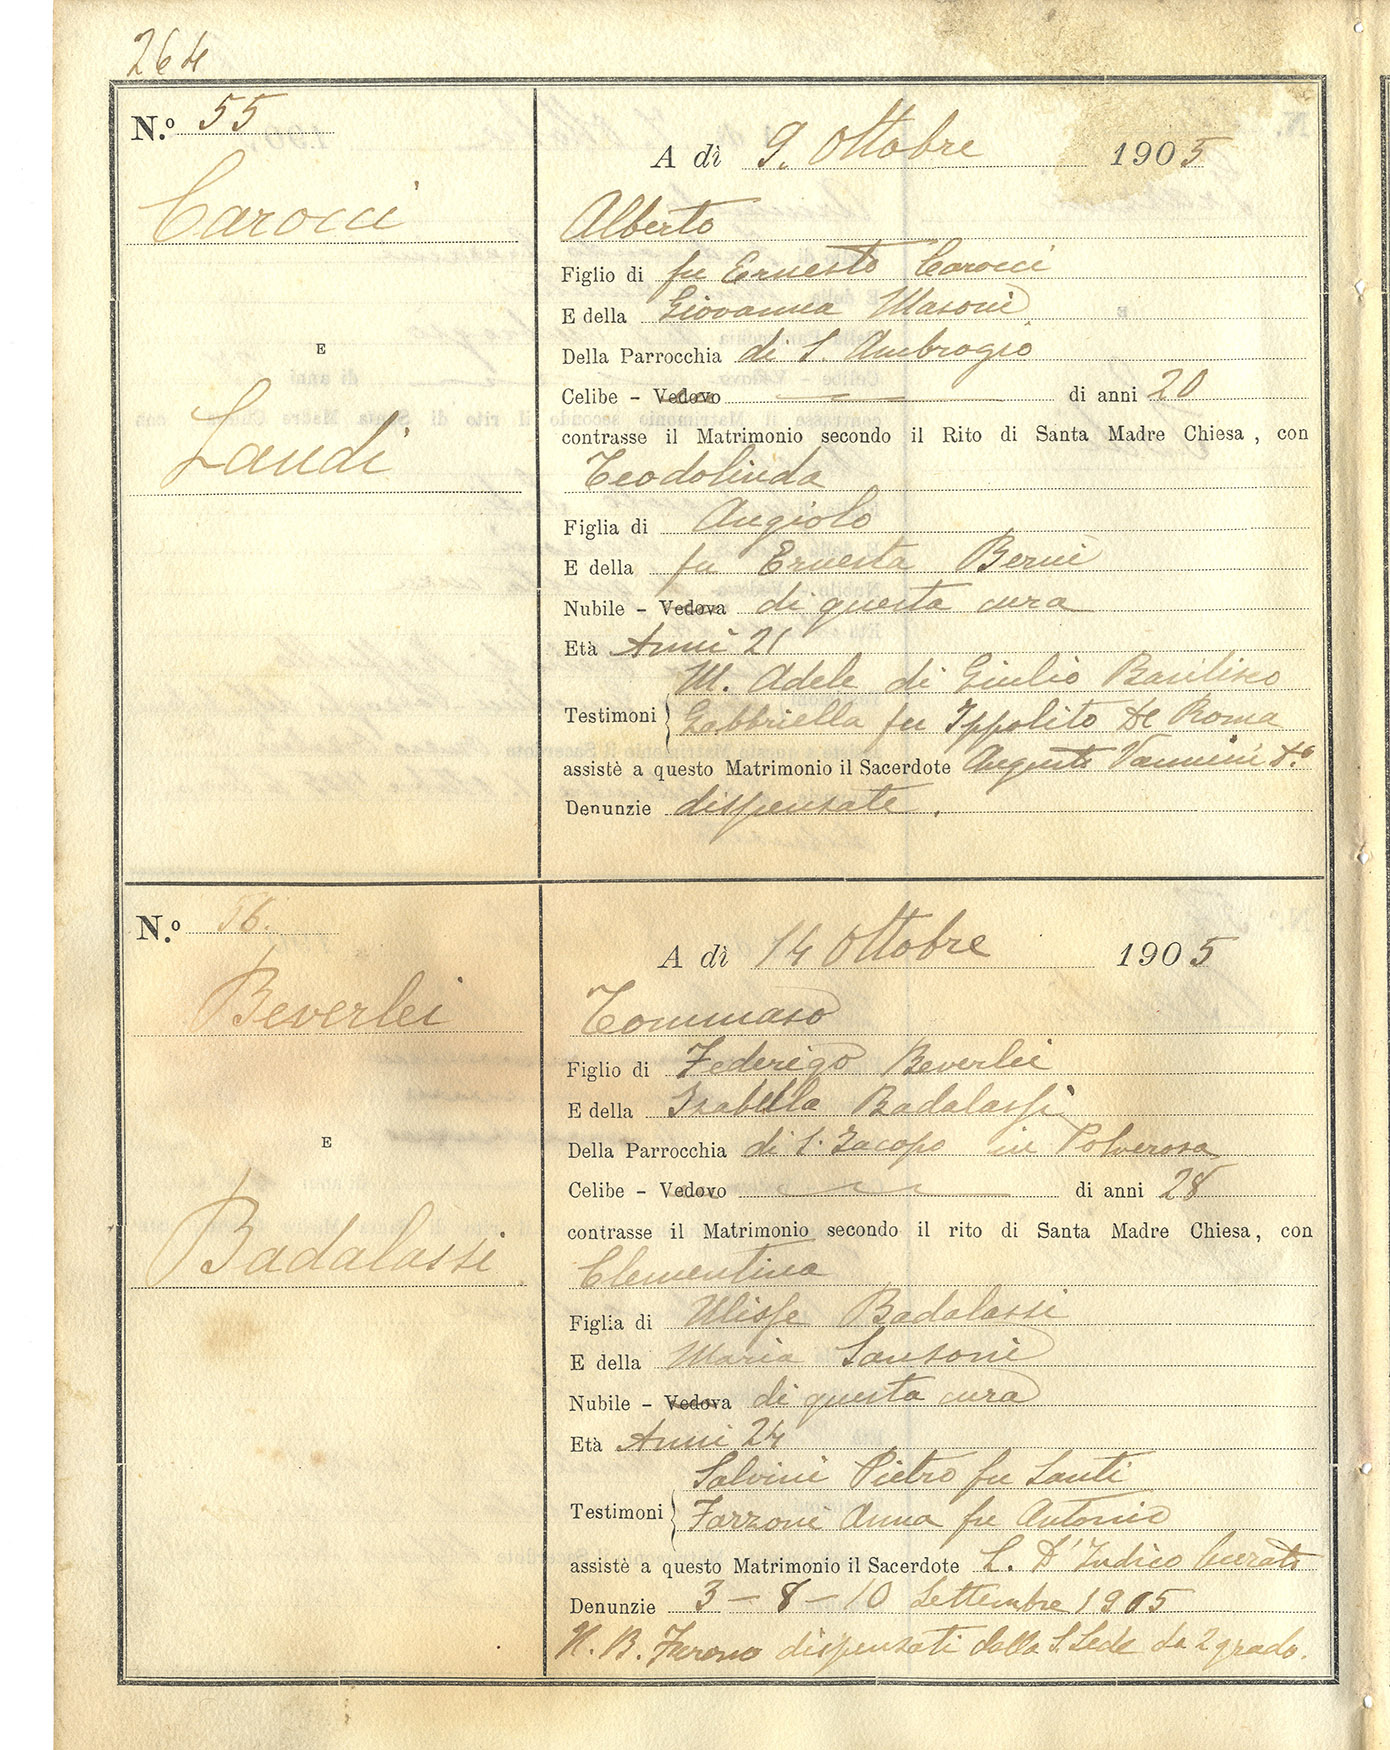 264
N.º 55
A dì 9. Ottobre 1905
Carocci
Alberto
Figlio di fu Ernesto Carocci
E della Giovanna Masoni
E
Della Parrocchia di S. Ambrogio
Celibe - Vedovo di anni 20
contrasse il Matrimonio secondo il Rito di Santa Madre Chiesa, con
Landi
Teodolinda
Figlia di Angiolo
E della fu Ernesta Berni
Nubile - Vedova di questa cura
Età Anni 21
M. Adele di Giulio Basilisco
Testimoni Gabbriella fu Ippolito De Roma
assistè a questo Matrimonio il Sacerdote Augusto Vannini
Denunzie dispensate.
N.º 56.
A dì 14 Ottobre 1905
Beverlei
Tommaso
Figlio di Federigo Beverlei
E della Isabella Badalassi
E
Della Parrocchia di S. Iacopo in Polverosa
Celibe - Vedovo di anni 28
contrasse il Matrimonio secondo il rito di Santa Madre Chiesa, con
Badalassi
Clementina
Figlia di Ulisse Badalassi
E della Maria Sansoni
Nubile - Vedova di questa cura
Età Anni 24
Salvini Pietro fu Santi
Testimoni Farzoni Anna fu Antonio
assistè a questo Matrimonio il Sacerdote L. D'Indico Curato
Denunzie 3 - 8 - 10 Settembre 1905
N. B. Furono dispensati dalla S. Sede da 2 grado.